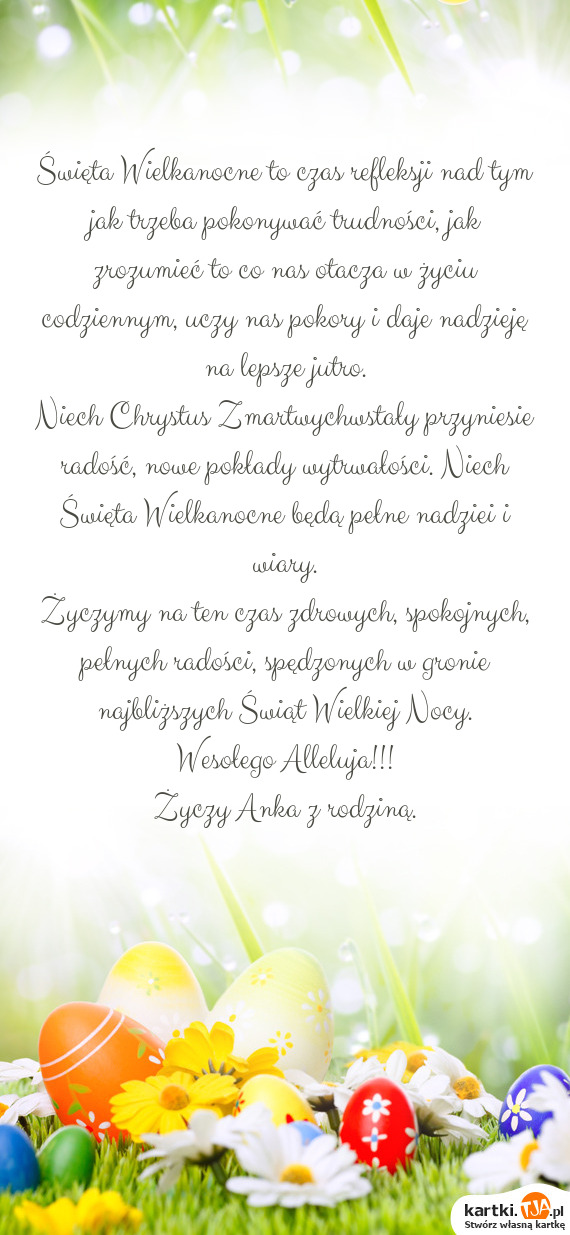 Święta Wielkanocne to czas refleksji nad tym
jak trzeba pokonywać trudności, jak
zrozumieć to co nas otacza w życiu
codziennym, uczy nas pokory i daje nadzieję
na lepsze jutro.
Niech Chrystus Zmartwychwstały przyniesie
radość, nowe pokłady wytrwałości. Niech
Święta Wielkanocne będą pełne nadziei i
wiary.
Życzymy na ten czas zdrowych, spokojnych,
pełnych radości, spędzonych w gronie
najbliższych Świąt Wielkiej Nocy.
Wesołego Alleluja!!!
Życzy Anka z rodziną.
kartki.TJA.pl
Stwórz własną kartkę